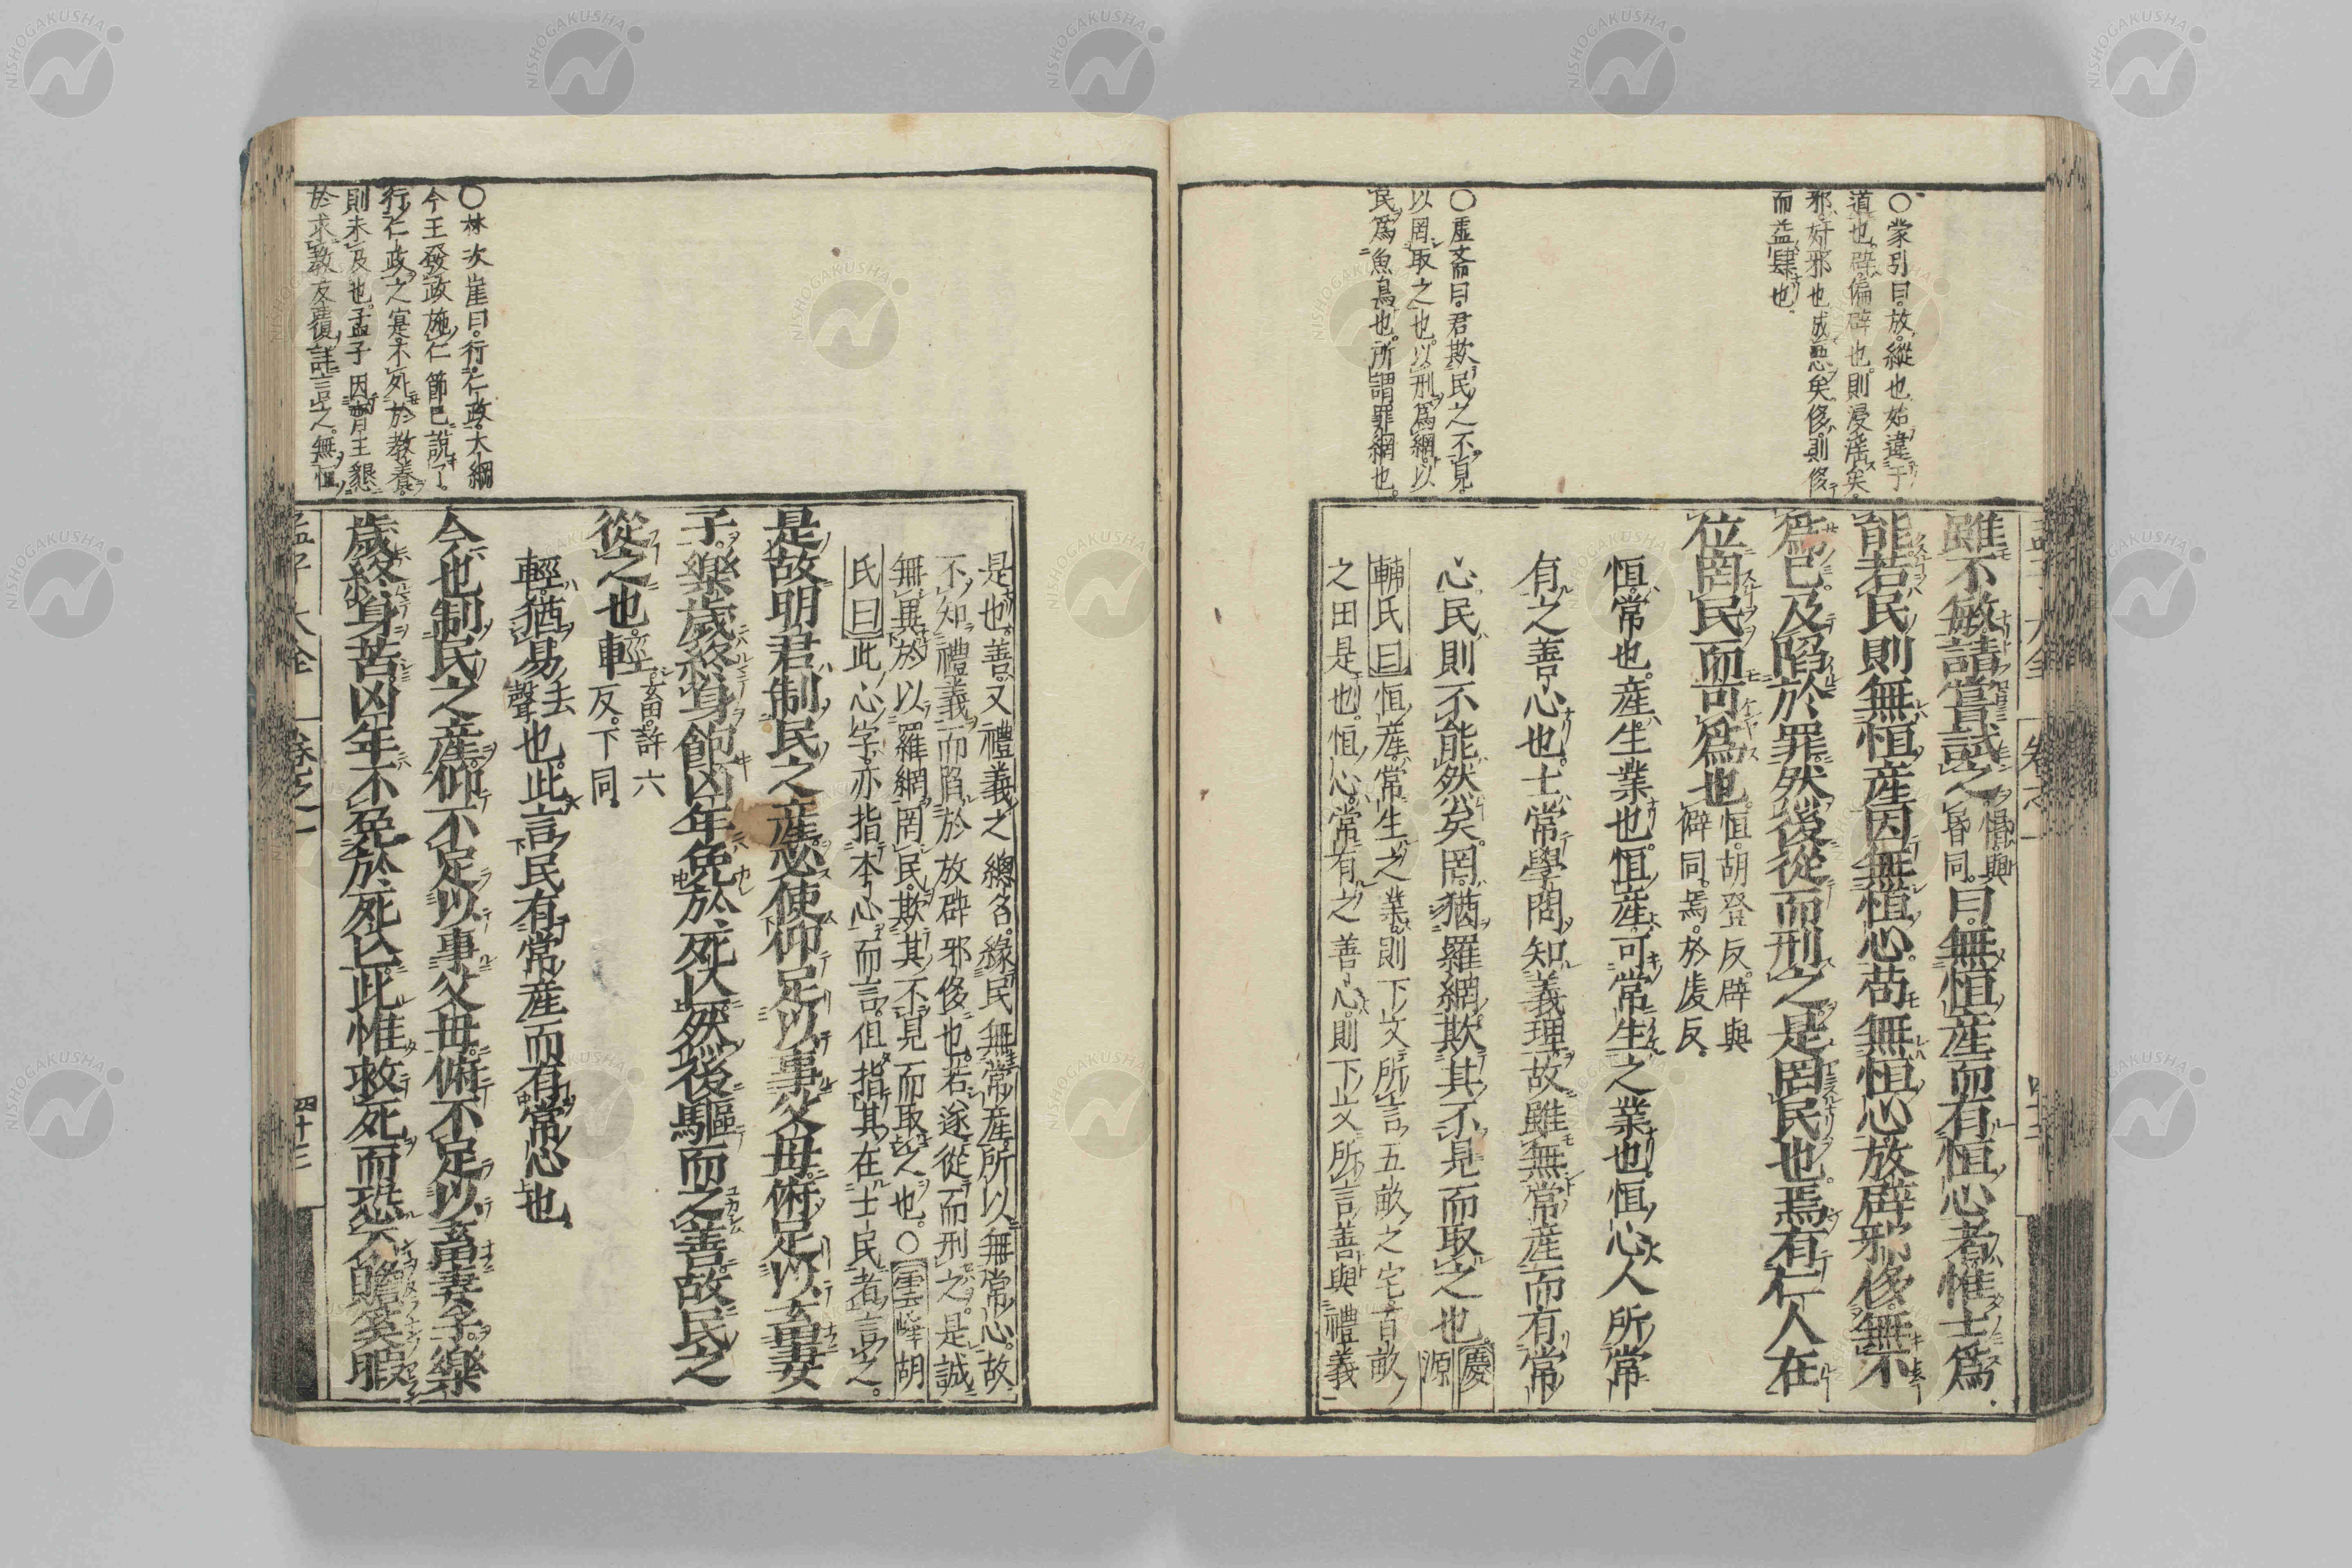 ○蒙引曰。放。縱也。始違于
道也。辟。偏辟也。則浸淫矣。
邪。奸邪也。成惡矣。侈。則侈
而益肆也。
○虛齋曰。君欺民之不見。
以罔取之也。以刑爲網。以
民爲魚鳥也。所謂罪網也。
雖不敏。請嘗試之。惛與昏同。曰。無恒産而有恒心者。惟士爲
能。若民則無恒産。因無恒心。苟無恒心。放辟邪侈。無不
爲已。及陷於罪。然後從而刑之。是罔民也。焉有仁人在
位。罔民而可爲也。恒。胡登反。辟與僻同。焉。於虔反。
恒。常也。産。生業也。恒産。可常生之業也。恒心。人所常
有之善心也。士常學問。知義理。故雖無常産而有常
心。民則不能然矣。罔。猶羅網。欺其不見而取之也。慶源
輔氏曰。恒産。常生之業。則下文所言五畝之宅。百畝
之田是也。恒心。常有之善心。則下文所言善與禮義
是也。善。又禮義之總名。緣民無常産。所以無常心。故
不知禮義而陷於放辟邪侈也。若遂從而刑之。是誠
無異於以羅網罔民。欺其不見而取之也。○雲峰胡
氏曰。此心字。亦指本心而言。但指其在士民者言之。
是故明君制民之産。必使仰足以事父母。俯足以畜妻
子。樂歲終身飽。凶年免於死亡。然後驅而之善。故民之
從之也輕。畜。許六反。下同。
輕。猶易去聲也。此言民有常産而有常心也。
今也制民之産。仰不足以事父母。俯不足以畜妻子。樂
歲終身苦。凶年不免於死亡。此惟救死而恐不贍。奚暇
○林次崖曰。行仁政。大綱
今王發政施仁節已說了。
行仁政之實。不外於教養。
則未及也。孟子因齊王懇
於求教。反覆詳言之。無恒
孟子大全
卷之一
四十三
NISHOGAKUSHA